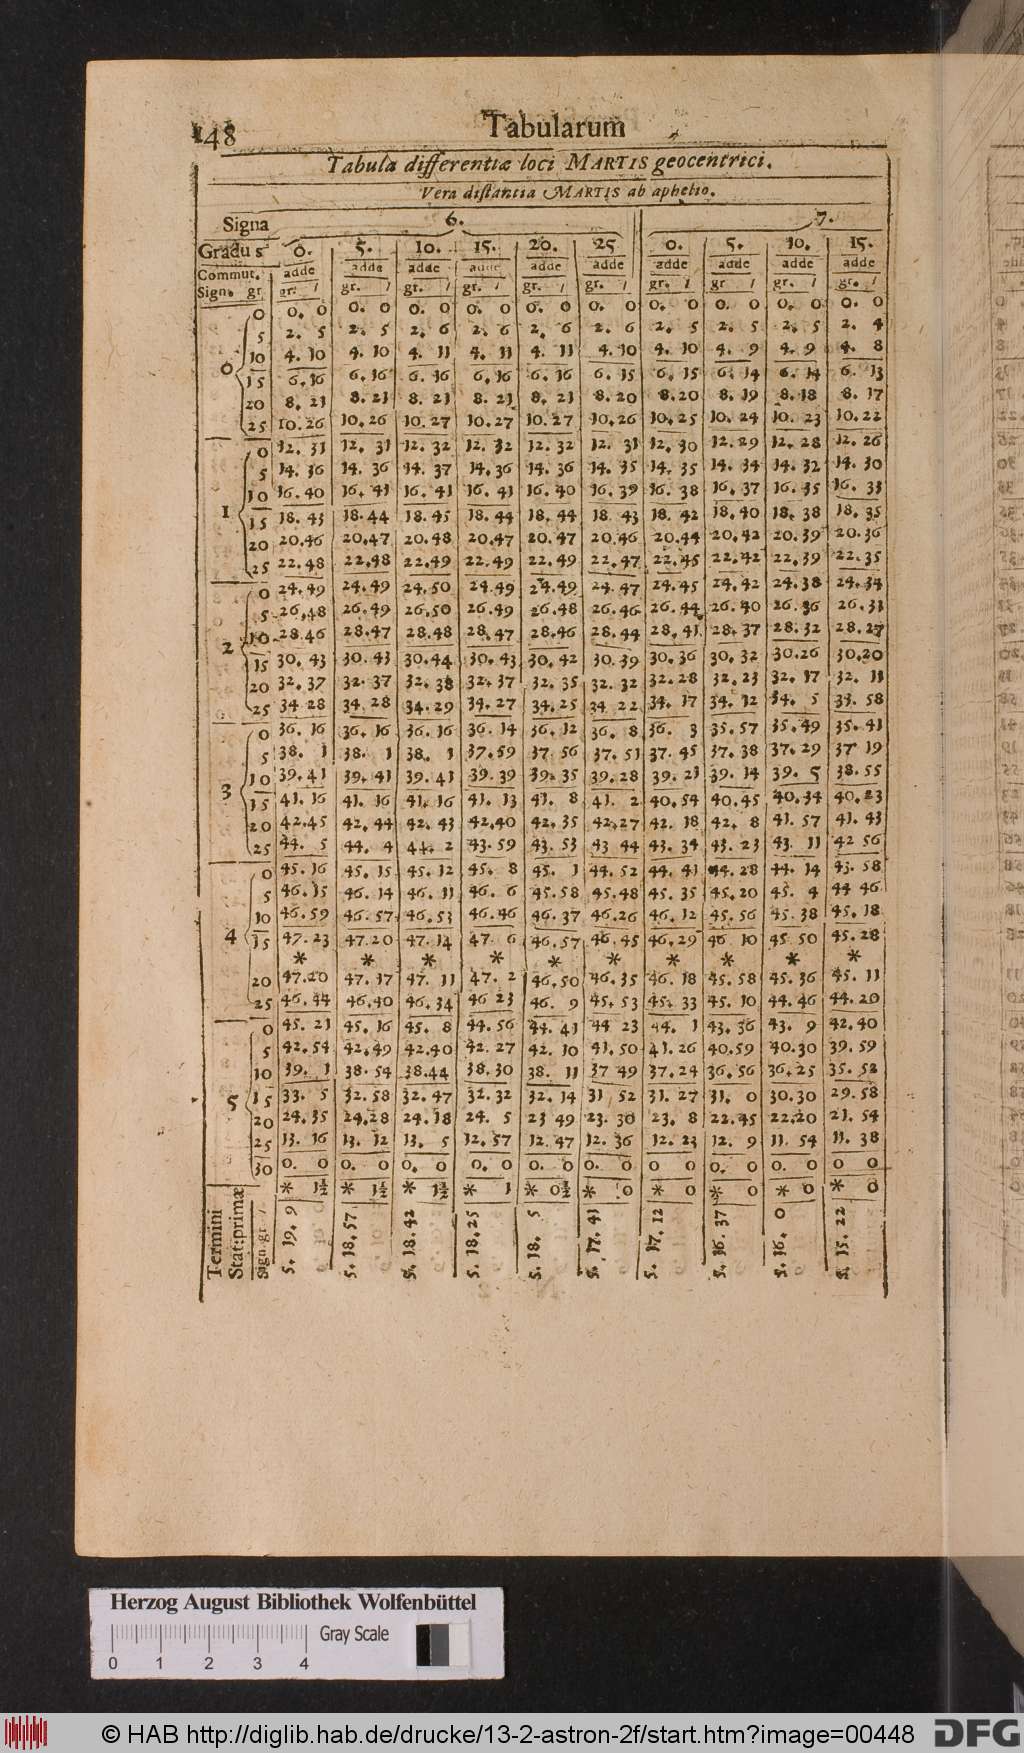 148 Tabularum
Tabula differentiæ loci MARTIS geocentrici.
Vera distantia MARTIS ab aphelio.
Signa 6. 7.
Gradus 0. 5. 10. 15. 20. 25 0. 5. 10. 15.
Commut. adde adde adde adde adde adde adde adde adde adde
Sign. gr gr. / gr. / gr. / gr. / gr. / gr. / gr. / gr / gr. / gr. /
0 0. 0 0. 0 0. 0 0. 0 0. 0 0. 0 0. 0 0. 0 0. 0 0. 0
5 2. 5 2. 5 2. 6 2. 6 2. 6 2. 6 2. 5 2. 5 2. 5 2. 4
0 10 4. 10 4. 10 4. 11 4. 11 4. 11 4. 10 4. 10 4. 9 4. 9 4. 8
15 6. 16 6. 16 6. 16 6. 16 6. 16 6. 15 6. 15 6. 14 6. 14 6. 13
20 8. 21 8. 21 8. 21 8. 21 8. 21 8. 20 8. 20 8. 19 8. 18 8. 17
25 10. 26 10. 26 10. 27 10. 27 10. 27 10. 26 10. 25 10. 24 10. 23 10. 22
0 12. 31 12. 31 12. 32 12. 32 12. 32 12. 31 12. 30 12. 29 12. 28 12. 26
5 14. 36 14. 36 14. 37 14. 36 14. 36 14. 35 14. 35 14. 34 14. 32 14. 30
1 10 16. 40 16. 41 16. 41 16. 41 16. 40 16. 39 16. 38 16. 37 16. 35 16. 33
15 18. 43 18. 44 18. 45 18. 44 18. 44 18. 43 18. 42 18. 40 18. 38 18. 35
20 20. 46 20. 47 20. 48 20. 47 20. 47 20. 46 20. 44 20. 42 20. 39 20. 36
25 22. 48 22. 48 22. 49 22. 49 22. 49 22. 47 22. 45 22. 42 22. 39 22. 35
0 24. 49 24. 49 24. 50 24. 49 24. 49 24. 47 24. 45 24. 42 24. 38 24. 34
5 26. 48 26. 49 26. 50 26. 49 26. 48 26. 46 26. 44 26. 40 26. 36 26. 31
2 10 28. 46 28. 47 28. 48 28. 47 28. 46 28. 44 28. 41 28. 37 28. 32 28. 27
15 30. 43 30. 43 30. 44 30. 43 30. 42 30. 39 30. 36 30. 32 30. 26 30. 20
20 32. 37 32. 37 32. 38 32. 37 32. 35 32. 32 32. 28 32. 23 32. 17 32. 11
25 34 28 34. 28 34. 29 34. 27 34. 25 34 22 34. 17 34. 12 34. 5 33. 58
0 36. 16 36. 16 36. 16 36. 14 36. 12 36. 8 36. 3 35. 57 35. 49 35. 41
5 38. 1 38. 1 38. 1 37. 59 37. 56 37. 51 37. 45 37. 38 37. 29 37 19
3 10 39. 41 39. 41 39. 41 39. 39 39. 35 39. 28 39. 21 39. 14 39. 5 38. 55
15 41. 16 41. 16 41. 16 41. 13 41. 8 41. 2 40. 54 40. 45 40. 34 40. 23
20 42. 45 42. 44 42. 43 42. 40 42. 35 42. 27 42. 18 42. 8 41. 57 41. 43
25 44. 5 44. 4 44. 2 43. 59 43. 53 43 44 43. 34 43. 23 43. 11 42 56
0 45. 16 45. 15 45. 12 45. 8 45. 1 44. 52 44. 41 44. 28 44. 14 43. 58
5 46. 15 46. 14 46. 11 46. 6 45. 58 45. 48 45. 35 45. 20 45. 4 44 46
10 46. 59 46. 57 46. 53 46. 46 46. 37 46. 26 46. 12 45. 56 45. 38 45. 18
4 15 47. 23 47. 20 47. 14 47. 6 46. 57 46. 45 46. 29 46 10 45 50 45. 28
* * * * * * * * * *
20 47. 20 47. 17 47. 11 47. 2 46. 50 46. 35 46. 18 45. 58 45. 36 45. 11
25 46. 44 46. 40 46. 34 46 23 46. 9 45. 53 45. 33 45. 10 44. 46 44. 20
0 45. 21 45. 16 45. 8 44. 56 44. 41 44 23 44. 1 43. 36 43. 9 42. 40
5 42. 54 42. 49 42. 40 42. 27 42. 10 41. 50 41. 26 40. 59 40. 30 39. 59
10 39. 1 38. 54 38. 44 38. 30 38. 11 37 49 37. 24 36. 56 36. 25 35. 52
5 15 33. 5 32. 58 32. 47 32. 32 32. 14 31 52 31. 27 31. 0 30. 30 29. 58
20 24. 35 24. 28 24. 18 24. 5 23 49 23. 30 23. 8 22. 45 22. 20 21. 54
25 13. 16 13. 12 13. 5 12. 57 12. 47 12. 36 12. 23 12. 9 11. 54 11. 38
30 0. 0 0. 0 0. 0 0. 0 0. 0 0. 0 0 0 0. 0 0. 0 0 0
* 1½ * 1½ * 1½ * 1 * 0½ * 0 * 0 * 0 * 0 * 0
Termini
Stat: primæ
Sign. gr /
5. 19. 9 5. 18. 57 5. 18. 42 5. 18. 25 5. 18. 5 5. 17. 41 5. 17. 12 5. 16. 37 5. 16. 0 5. 15. 22
Herzog August Bibliothek Wolfenbüttel
Gray Scale
0 1 2 3 4
© HAB http://diglib.hab.de/drucke/13-2-astron-2f/start.htm?image=00448 DFG